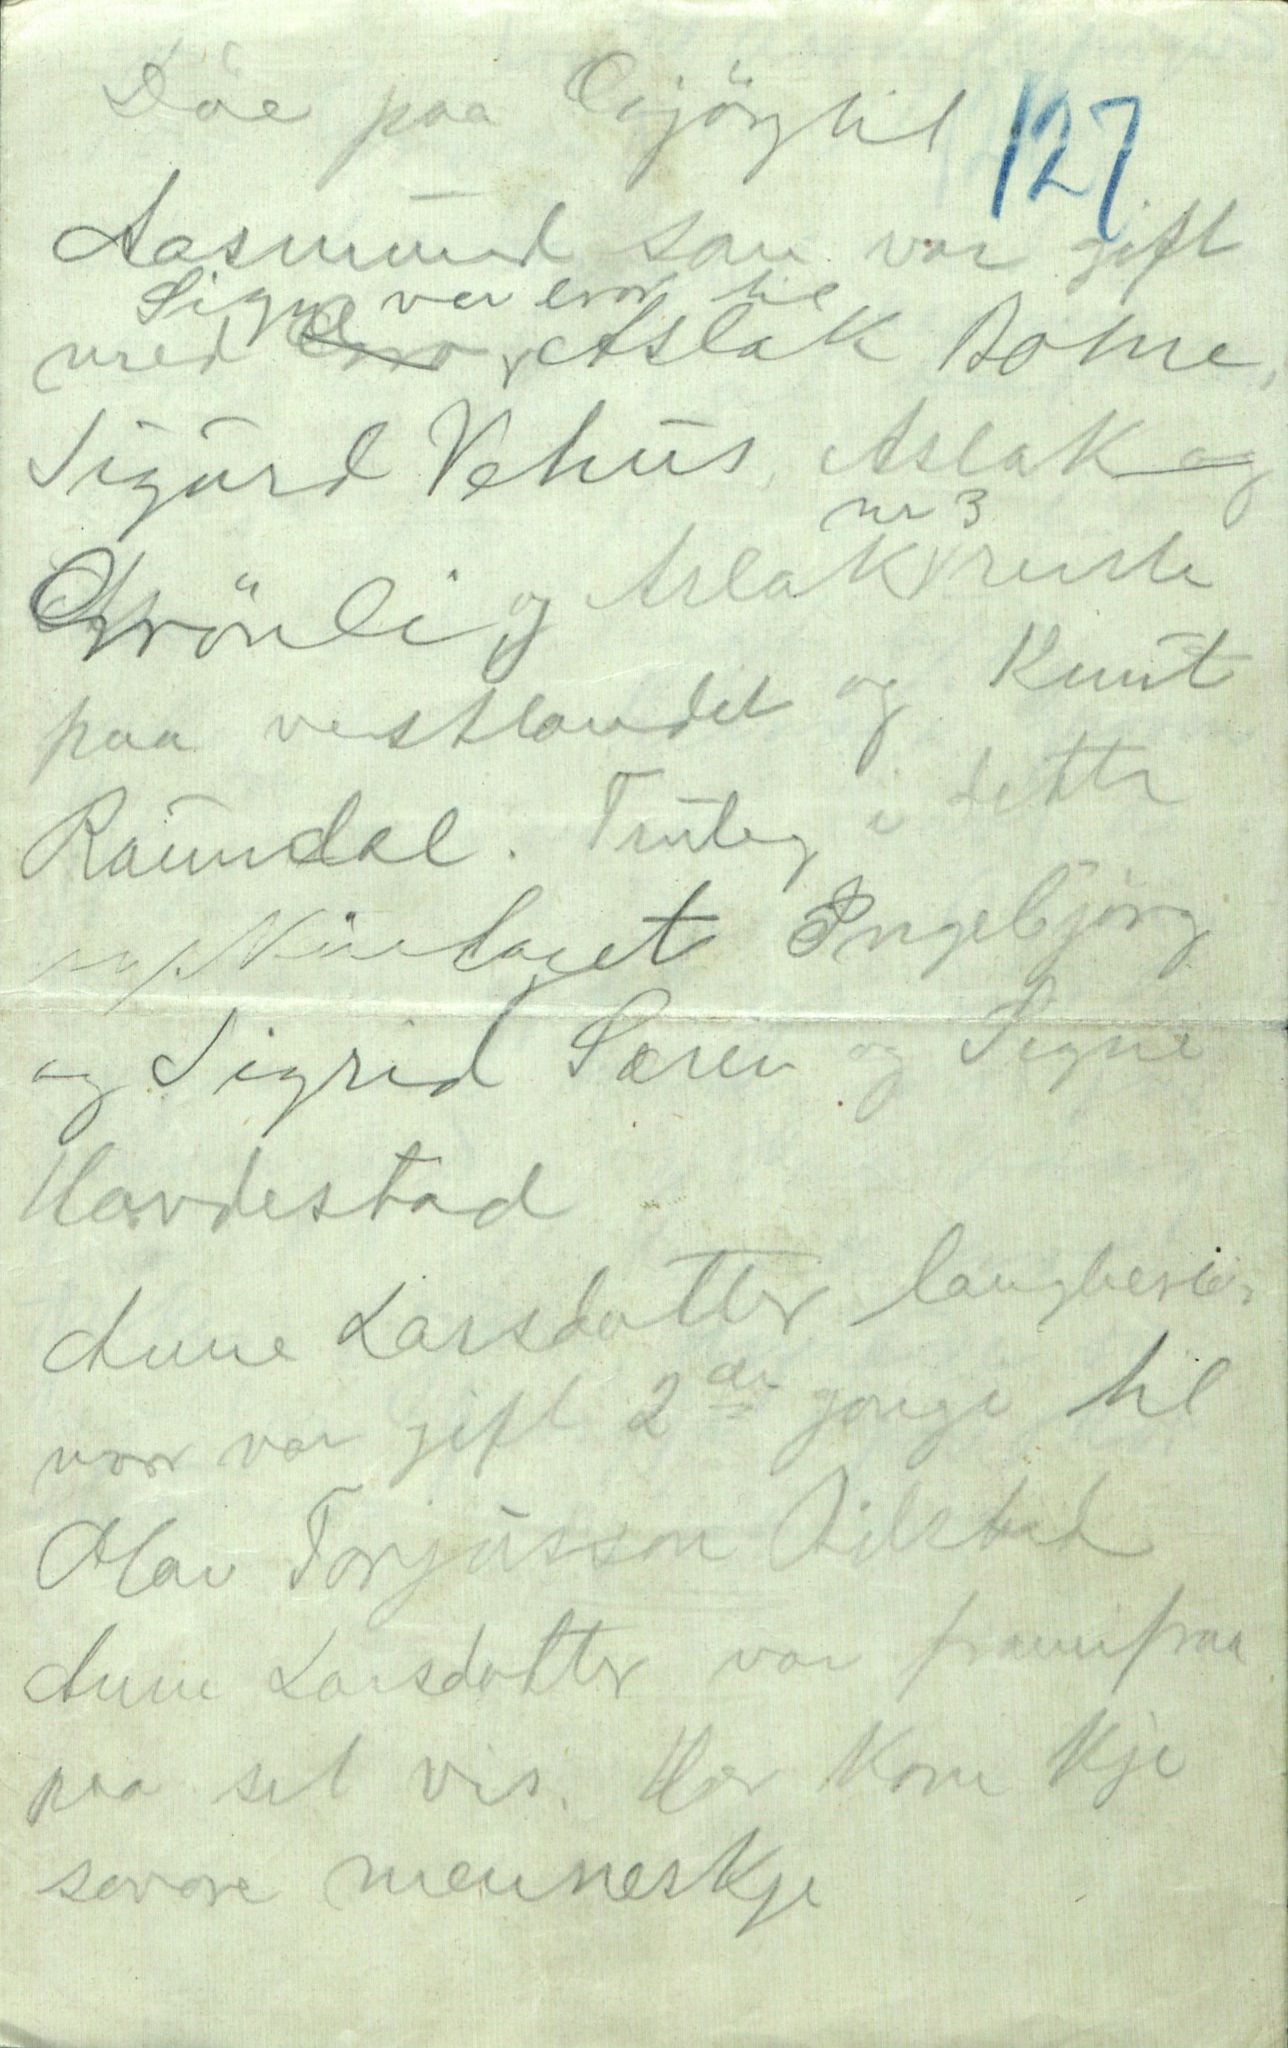 Döe paa til
127
Aasmund som var gift
Signe var bror til
med Aslak Bohne,
Sigurd Vehus, Aslak og
nr 3
Grönli og Aslak reiste
paa vestlandet og Knut
Raundal. Truleg i dette
Ingebjörg
og Sigrid Søren og Signe
Havdestad
Anne Larsdotter langbeste
mor var gift 2dre gonge til
Olav Torjusson Rilstad
Anne Larsdotter var framifraa
paa set vis. Her kom kje
savore menneskje